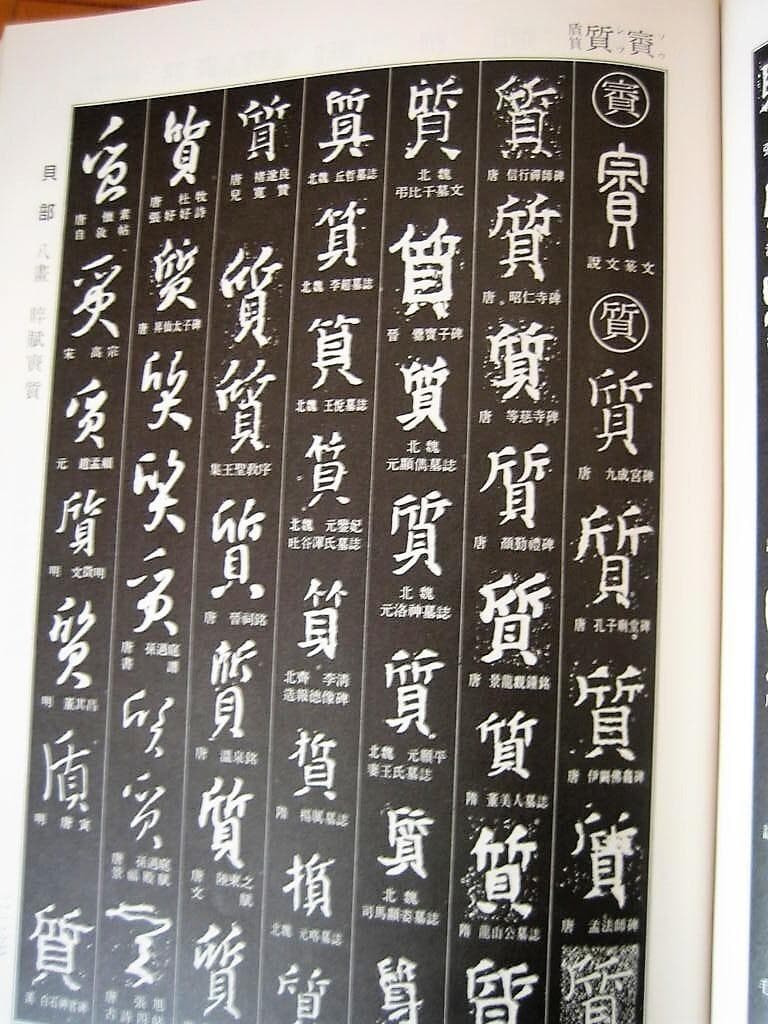 賨
質
賨
説文篆文
質
質
唐 九成宮碑
質
唐 孔子廟堂碑
質
唐 伊闕佛龕碑
質
唐 孟法師碑
質
質
唐 信行禪師碑
質
唐 昭仁寺碑
質
唐 等慈寺碑
質
唐 顏勤禮碑
質
唐 景龍觀鐘銘
質
隋 董美人墓誌
質
隋 龍山公墓誌
質
質
北魏
弔比干墓文
質
晉 爨寶子碑
質
北魏
元顯儁墓誌
質
北魏
元洛神墓誌
質
北魏 元顯平
妻王氏墓誌
質
北魏
司馬顯姿墓誌
質
質
北魏 丘哲墓誌
質
北魏 李超墓誌
質
北魏 王悅墓誌
質
北魏 元鑒妃
吐谷渾氏墓誌
質
北齊 李清
造報德像碑
質
隋 楊厲墓誌
質
北魏 元㕧墓誌
質
質
唐 褚遂良
兒寬贊
質
質
集王聖教序
質
唐 晉祠銘
質
唐 溫泉銘
質
唐 陸柬之
文賦
質
質
唐 杜牧
張好好詩
質
唐 昇仙太子碑
質
質
質
唐 孫過庭
書譜
質
質
唐 孫過庭
景福殿賦
質
唐 張旭
質
唐 懷素
自敘帖
質
宋 高宗
質
元 趙孟頫
質
明 文徵明
質
明 董其昌
質
明 唐寅
質
漢 白石神君碑
貝部 八畫 賥賦賨質